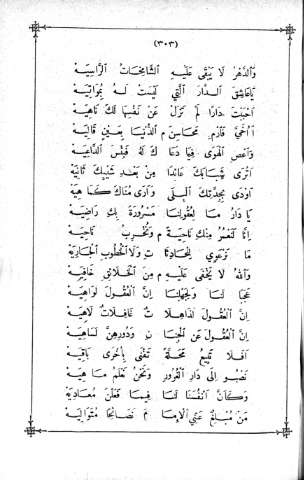 (٣٠٣)
وَالدَّهْرُ لَا يَبْقَى عَلَيْهِ الشَّامِخَاتُ الرَّاسِيَهْ
يَا عَاشِقَ الدَّارِ الَّتِي لَيْسَتْ لَهُ بِمُوَاتِيَهْ
أَحْبَبْتَ دَارًا لَمْ تَزَلْ عَنْ نَفْسِهَا لَكَ نَاهِيَهْ
أَأُخَيَّ فَارْمِ مَحَاسِنَ م الدُّنْيَا بِعَيْنٍ قَالِيَهْ
وَاعْصِ الْهَوَى فِيمَا دَعَا كَ لَهُ فَبِئْسَ الدَّاعِيَهْ
أَتَرَى شَبَابَكَ عَائِدًا مِنْ بَعْدِ شَيْبِكَ ثَانِيَهْ
أَوْدَى بِجِدَّتِكَ الْبِلَى وَأَرَى مُنَاكَ كَمَا هِيَهْ
يَا دَارُ مَا لِعُقُولِنَا مَسْرُورَةً بِكِ رَاضِيَهْ
إِنَّا لَنَعْمُرُ مِنْكِ نَاحِيَةً م وَنُخْرِبُ نَاحِيَهْ
مَا نَرْعَوِي لِلْحَادِثَا تِ وَلَا الْخُطُوبِ الْجَارِيَهْ
وَاللهُ لَا يَخْفَى عَلَيْهِ م مِنَ الْخَلَائِقِ خَافِيَهْ
عَجَبًا لَنَا وَلِجَهْلِنَا إِنَّ الْعُقُولَ لَوَاهِيَهْ
إِنَّ الْعُقُولَ لَذَاهِلَا تٌ غَافِلَاتٌ لَاهِيَهْ
إِنَّ الْعُقُولَ عَنِ الْجِنَا نِ وَدُورِهِنَّ لَسَاهِيَهْ
أَفَلَا نَبِيعُ مَحَلَّةً تَفْنَى بِأُخْرَى بَاقِيَهْ
نَصْبُو إِلَى دَارِ الْغُرُورِ وَنَحْنُ نَعْلَمُ مَا هِيَهْ
وَكَأَنَّ أَنْفُسَنَا لَنَا فِيمَا فَعَلْنَ مُعَادِيَهْ
مَنْ مُبْلِغٌ عَنِّي الْإِمَا مَ نَصَائِحًا مُتَوَالِيَهْ